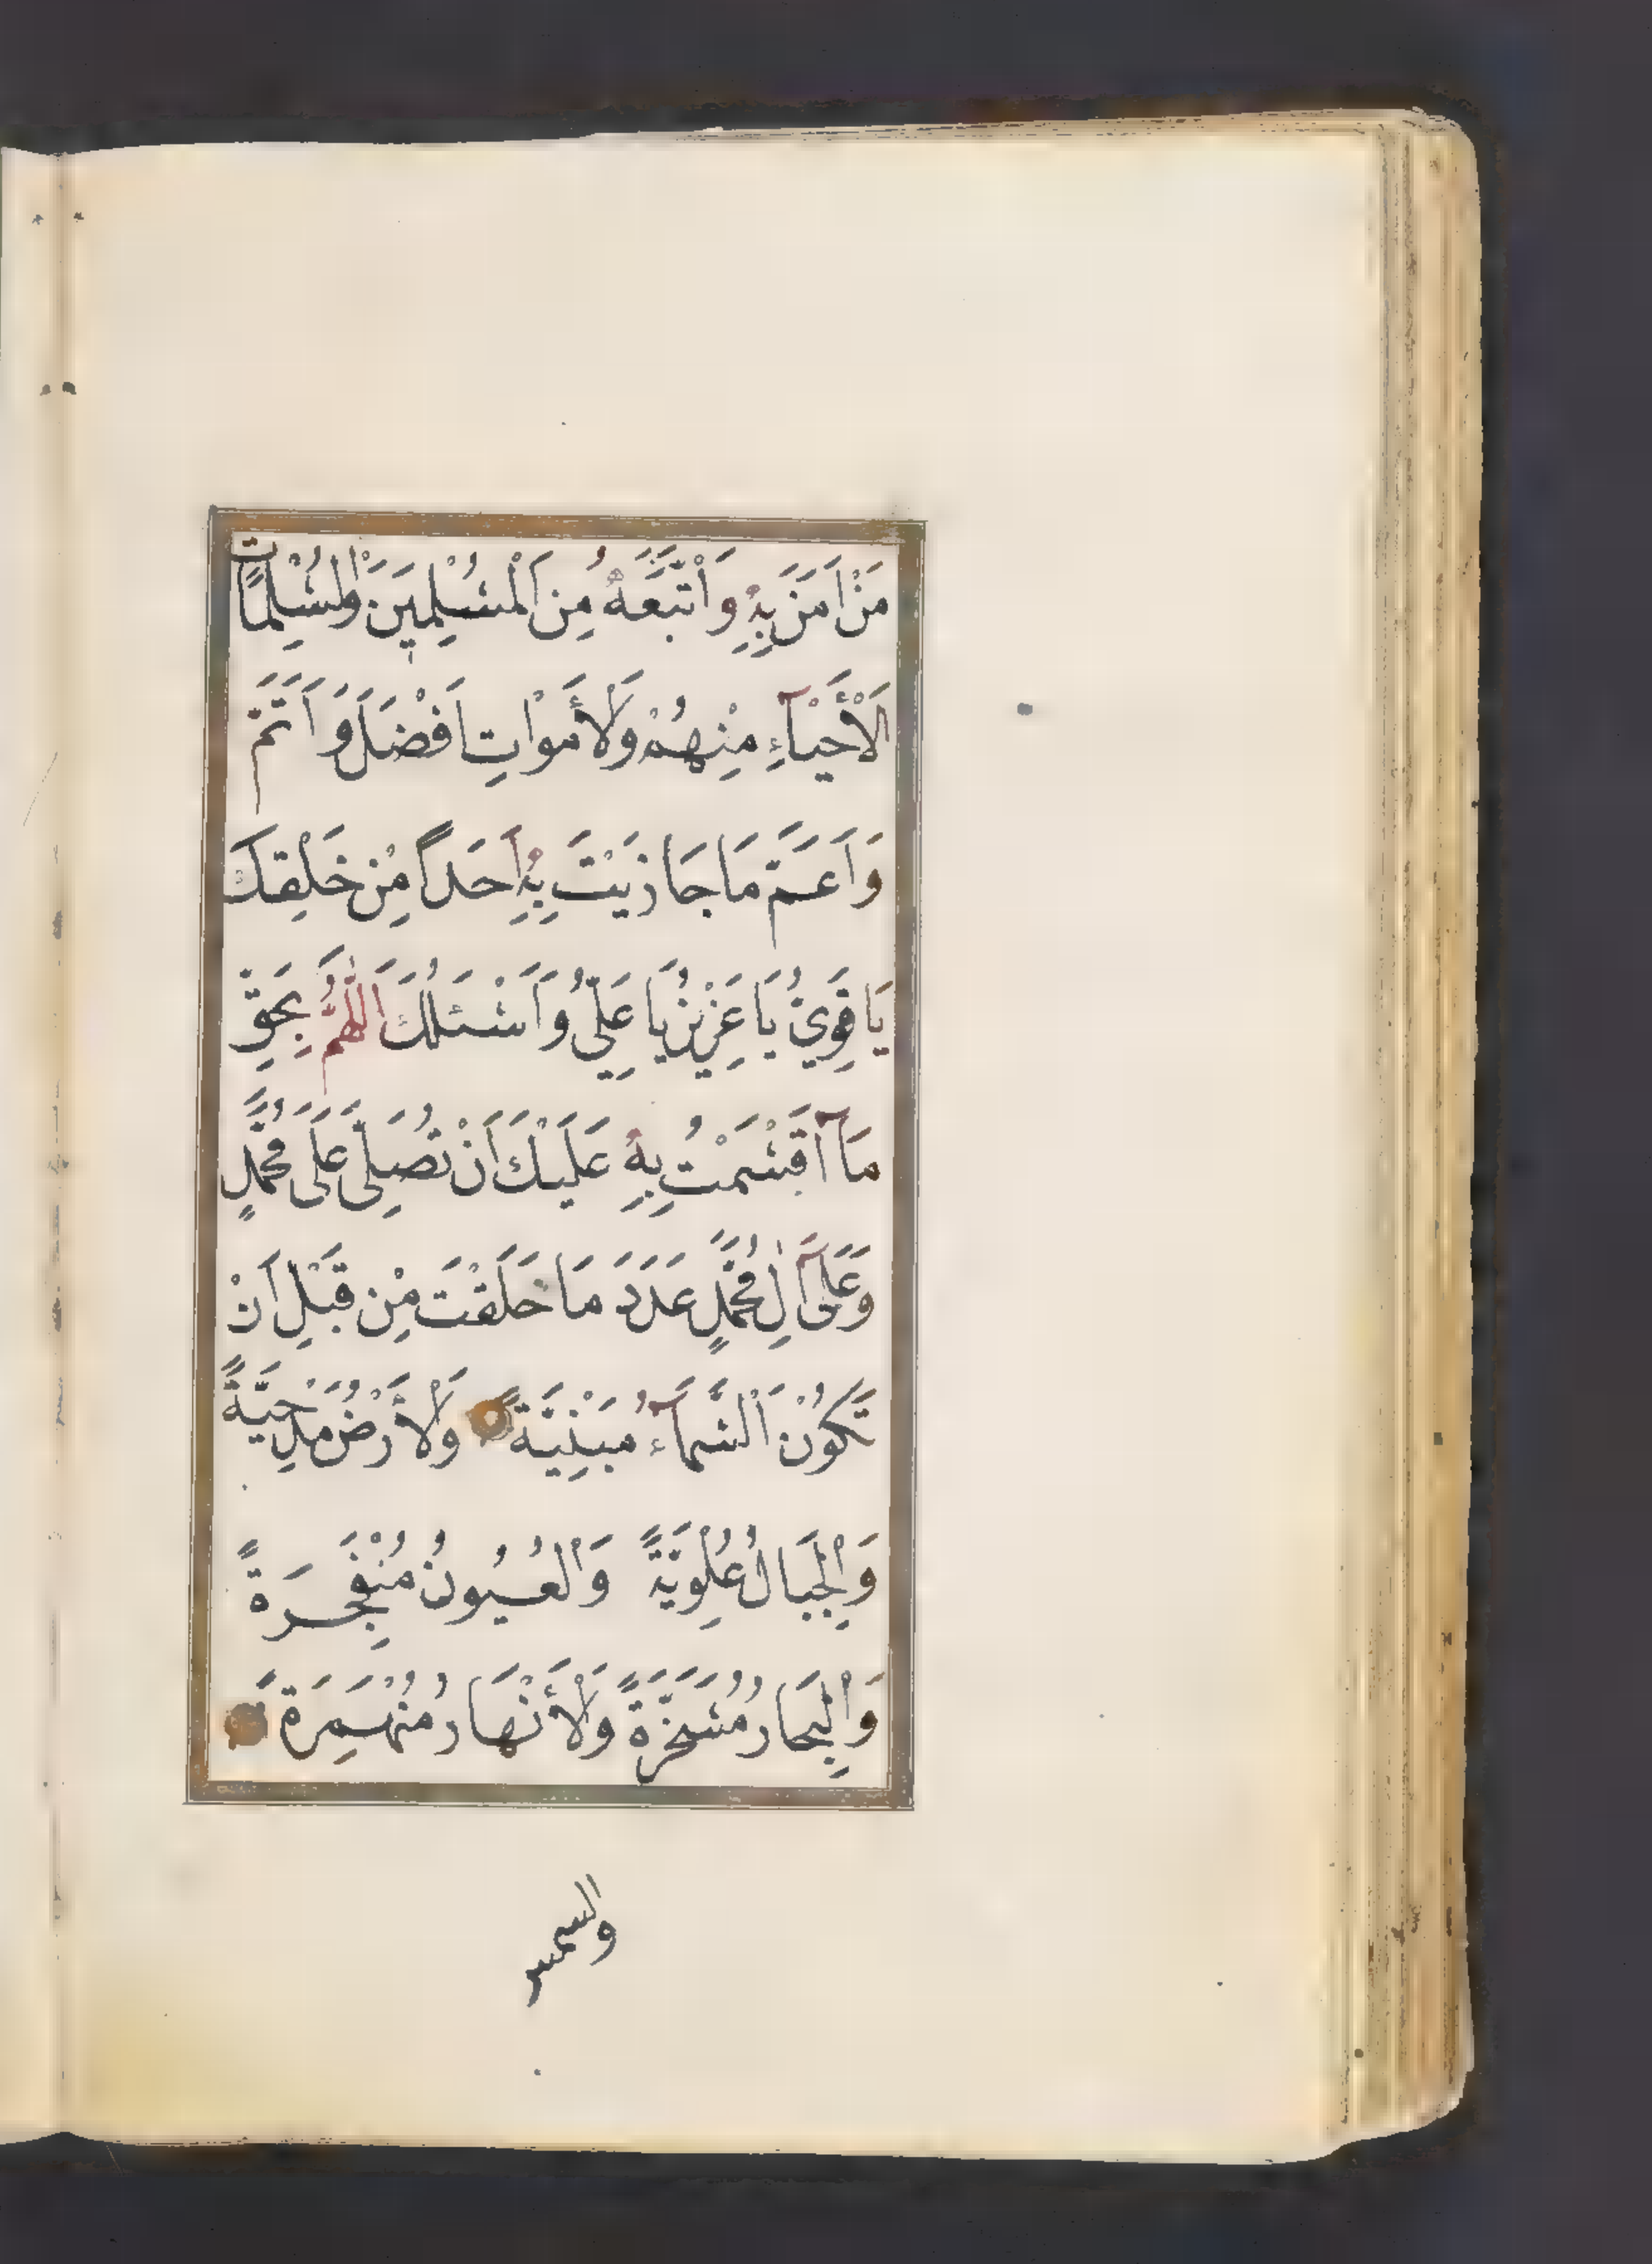 مَنْ اٰمَنَ بِهِ وَاَتَّبَعَهُ مِنَ اَلْمُسْلِمِينَ وَالْمُسْلِمَاتِ
اَلْأَحْيَآءِ مِنْهُمْ وَالْأَمْوَاتِ اَفْضَلَ وَاَتَمَّ
وَاَعَمَّ مَا جَاذَيْتَ بِهِ اَحَداً مِنْ خَلْقِكَ
يَا قَوِيُّ يَا عَزِيزُ يَا عَلِيُّ وَاَسْئَلُكَ اَللّٰهُمَّ بِحَقِّ
مَآ اَقْسَمْتُ بِهِ عَلَيْكَ اَنْ تُصَلِّىَ عَلَى مُحَمَّدٍ
وَعَلَىٰٓ اٰلِ مُحَمَّدٍ عَدَدَ مَا خَلَقْتَ مِنْ قَبْلِ اَنْ
تَكُونَ اَلسَّمَآءُ مَبْنِيَّةً وَالْأَرْضُ مَدْحِيَّةً
وَالْجِبَالُ عُلْوِيَّةً وَالْعُيُونُ مُنْفَجِرَةً
وَالْبِحَارُ مُسَخَّرَةً وَالْأَنْهَارُ مُنْهَمِرَةً
والشمس